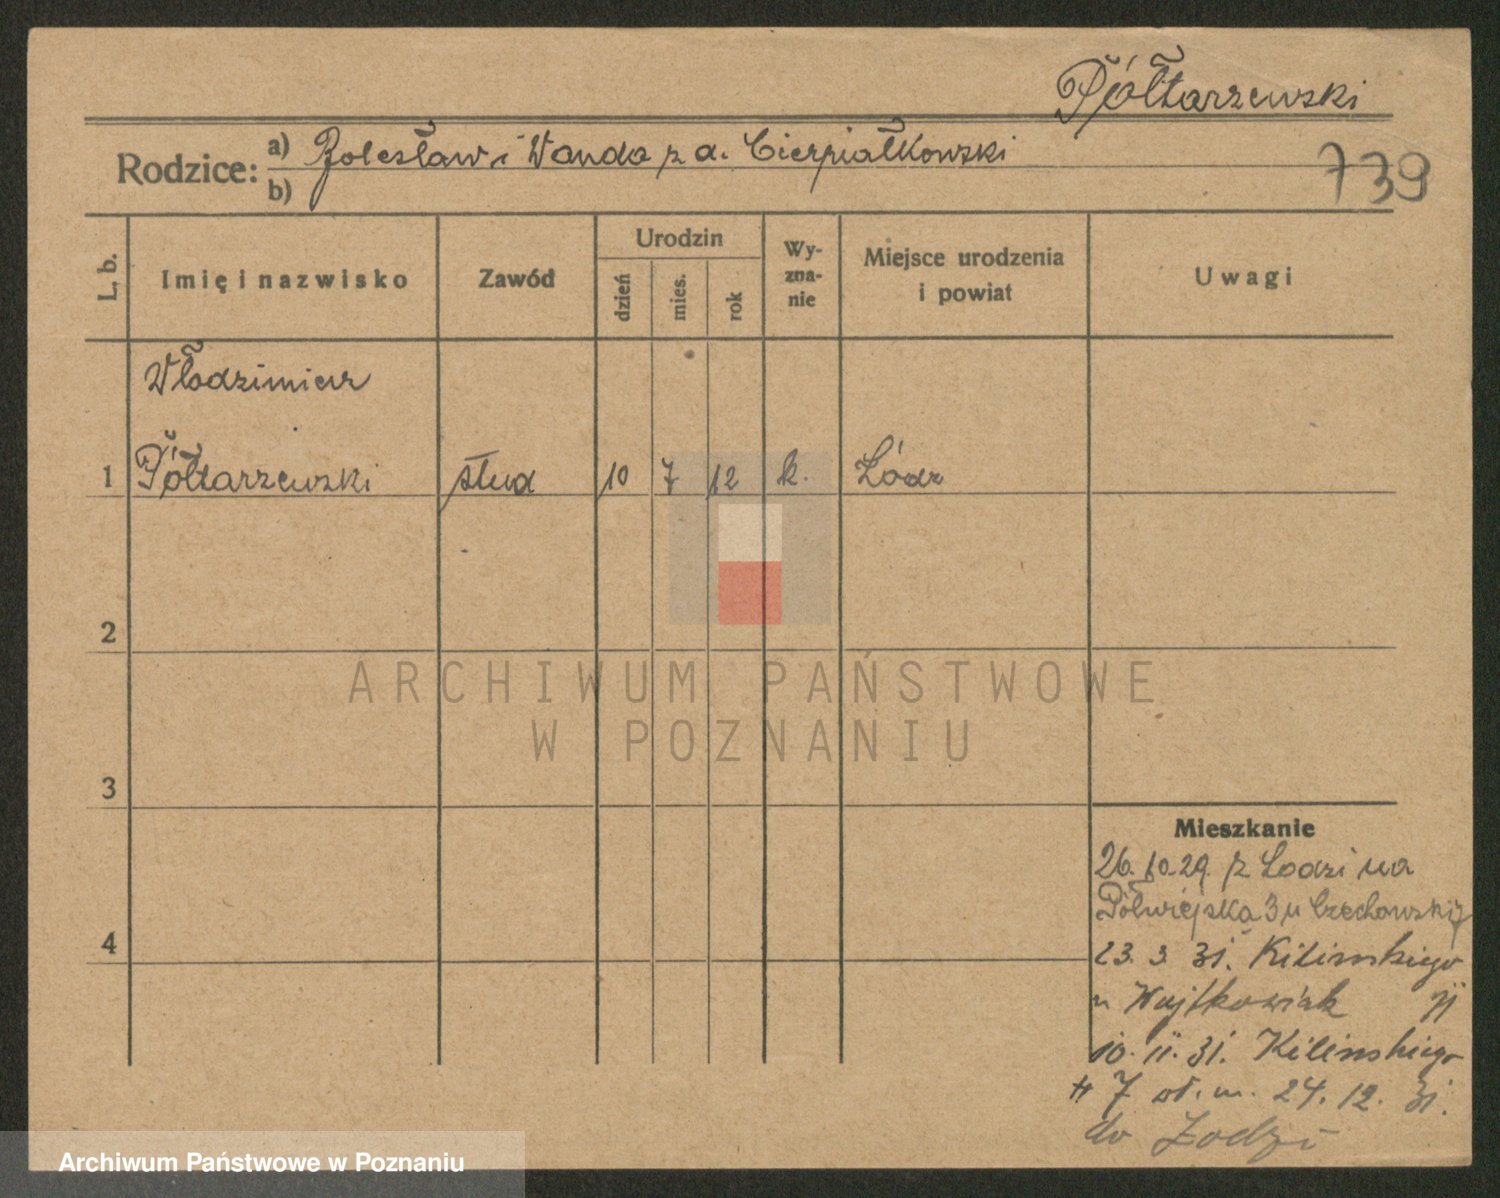 Półtarzewski
Rodzice: a) Bolesław i Wanda z d. Cierpiałkowski
b)
739
L. b.
Imię i nazwisko
Zawód
Urodzin
dzień
mies.
rok
Wy-
zna-
nie
Miejsce urodzenia
i powiat
Uwagi
Włodzimierz
1 Półtarzewski stud 10 7 12 k. Łódz
2
3
4
Mieszkanie
26.10.29. z Lodzi na
Półwiejska 3 u Czechowskij
23. 3. 31. Kilinskiego
u Wojtkowiak
10. 11. 31. Kilinskiego
7 24. 12. 31.
do Łodzi
ARCHIWUM PAŃSTWOWE
W POZNANIU
Archiwum Państwowe w Poznaniu